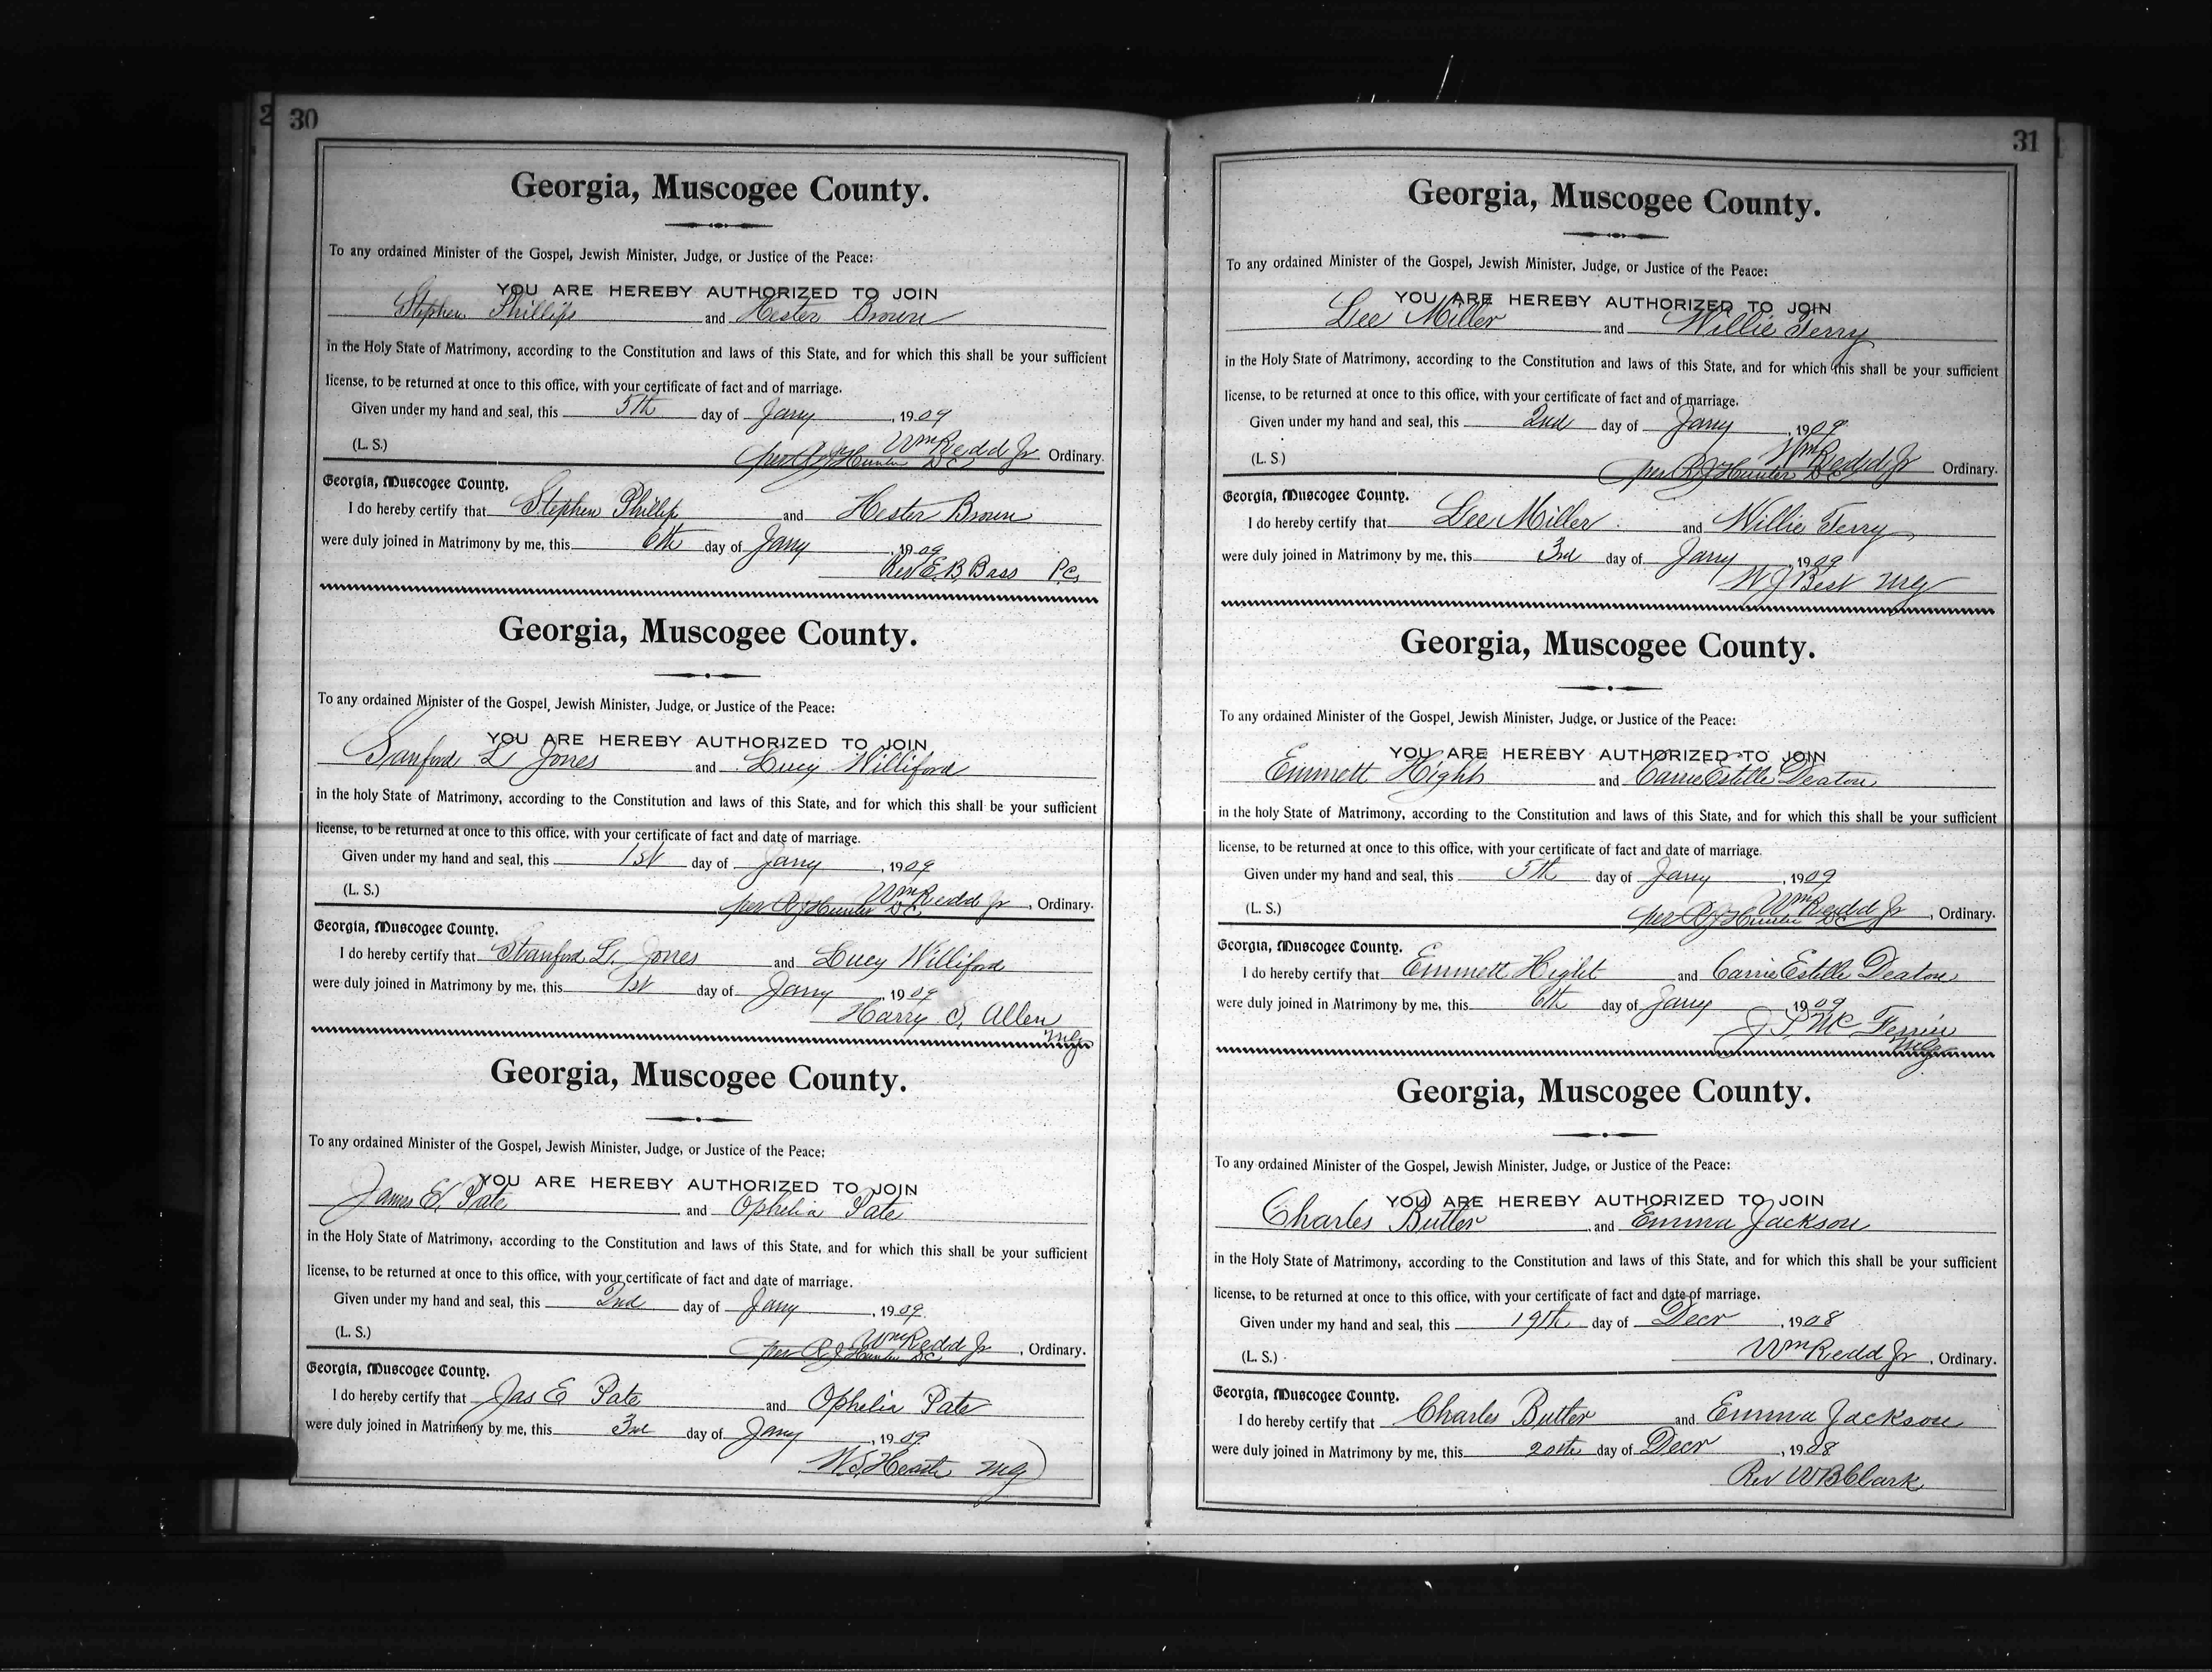 2
30
Georgia, Muscogee County.
To any ordained Minister of the Gospel, Jewish Minister, Judge, or Justice of the Peace:
YOU ARE HEREBY AUTHORIZED TO JOIN
Stephen Phillips and Hester Brown
in the Holy State of Matrimony, according to the Constitution and laws of this State, and for which this shall be your sufficient
license, to be returned at once to this office, with your certificate of fact and of marriage.
Given under my hand and seal, this 5th day of Jany, 1909
(L. S.) Wm Redd Jr Ordinary.
per R J Hunter DC
Georgia, Muscogee County.
I do hereby certify that Stephen Phillip and Hester Brown
were duly joined in Matrimony by me, this 6th day of Jany, 1909
Rev E. B. Bass P.C.
Georgia, Muscogee County.
To any ordained Minister of the Gospel, Jewish Minister, Judge, or Justice of the Peace:
YOU ARE HEREBY AUTHORIZED TO JOIN
Sanford L. Jones and Lucy Williford
in the holy State of Matrimony, according to the Constitution and laws of this State, and for which this shall be your sufficient
license, to be returned at once to this office, with your certificate of fact and date of marriage.
Given under my hand and seal, this 1st day of Jany, 1909
(L. S.) Wm Redd Jr, Ordinary.
per R J Hunter DC
Georgia, Muscogee County.
I do hereby certify that Stanford L. Jones and Lucy Williford
were duly joined in Matrimony by me, this 1st day of Jany, 1909
Harry S. Allen
MG
Georgia, Muscogee County.
To any ordained Minister of the Gospel, Jewish Minister, Judge, or Justice of the Peace:
YOU ARE HEREBY AUTHORIZED TO JOIN
James E. Pate and Ophelia Pate
in the Holy State of Matrimony, according to the Constitution and laws of this State, and for which this shall be your sufficient
license, to be returned at once to this office, with your certificate of fact and date of marriage.
Given under my hand and seal, this 2nd day of Jany, 1909
(L. S.) Wm Redd Jr, Ordinary.
per R J Hunter DC
Georgia, Muscogee County.
I do hereby certify that Jas E Pate and Ophelia Pate
were duly joined in Matrimony by me, this 3rd day of Jany, 1909
W. S. MG
31
Georgia, Muscogee County.
To any ordained Minister of the Gospel, Jewish Minister, Judge, or Justice of the Peace:
YOU ARE HEREBY AUTHORIZED TO JOIN
Lee Miller and Willie Terry
in the Holy State of Matrimony, according to the Constitution and laws of this State, and for which this shall be your sufficient
license, to be returned at once to this office, with your certificate of fact and of marriage.
Given under my hand and seal, this 2nd day of Jany, 1909
(L. S) Wm Redd Jr Ordinary.
per R J Hunter DC
Georgia, Muscogee County.
I do hereby certify that Lee Miller and Willie Terry
were duly joined in Matrimony by me, this 3rd day of Jany, 1909
W J Best MG
Georgia, Muscogee County.
To any ordained Minister of the Gospel, Jewish Minister, Judge, or Justice of the Peace:
YOU ARE HEREBY AUTHORIZED TO JOIN
Emmett Hight and Carrie Estille Deaton
in the holy State of Matrimony, according to the Constitution and laws of this State, and for which this shall be your sufficient
license, to be returned at once to this office, with your certificate of fact and date of marriage.
Given under my hand and seal, this 5th day of Jany, 1909
(L. S.) Wm Redd Jr, Ordinary.
per R J Hunter DC
Georgia, Muscogee County.
I do hereby certify that Emmett Hight and Carrie Estille Deaton
were duly joined in Matrimony by me, this 6th day of Jany 1909
J P Mc
MG
Georgia, Muscogee County.
To any ordained Minister of the Gospel, Jewish Minister, Judge, or Justice of the Peace:
YOU ARE HEREBY AUTHORIZED TO JOIN
Charles Butler and Emma Jackson
in the Holy State of Matrimony, according to the Constitution and laws of this State, and for which this shall be your sufficient
license, to be returned at once to this office, with your certificate of fact and date of marriage.
Given under my hand and seal, this 19th day of Decr, 1908
(L. S.) Wm Redd Jr, Ordinary.
Georgia, Muscogee County.
I do hereby certify that Charles Butler and Emma Jackson
were duly joined in Matrimony by me, this 20th day of Decr, 1908
Rev W B Clark